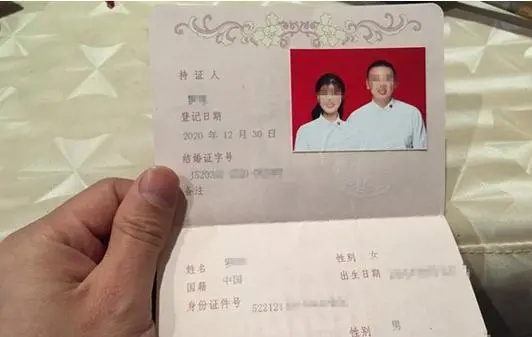 持证人
登记日期
2020 年 12 月 30 日
结婚证字号
备注
姓名 性别 女
国籍 中国 出生日期
身份证件号 522121
性别 男